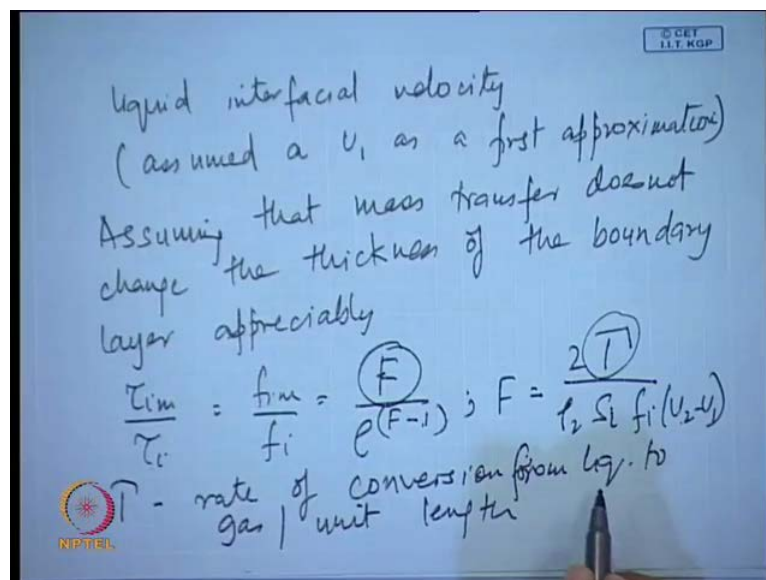 © CET
I.I.T. KGP
liquid interfacial velocity
(assumed a U₁ as a first approximation)
Assuming that mass transfer doesnot
change the thickness of the boundary
layer appreciably
τim/τi = fim/fi = F/e^(F-1) ; F = 2Γ/(ρ₂ Si fi (U₂-U₁))
Γ - rate of conversion from liq. to
gas / unit length
NPTEL